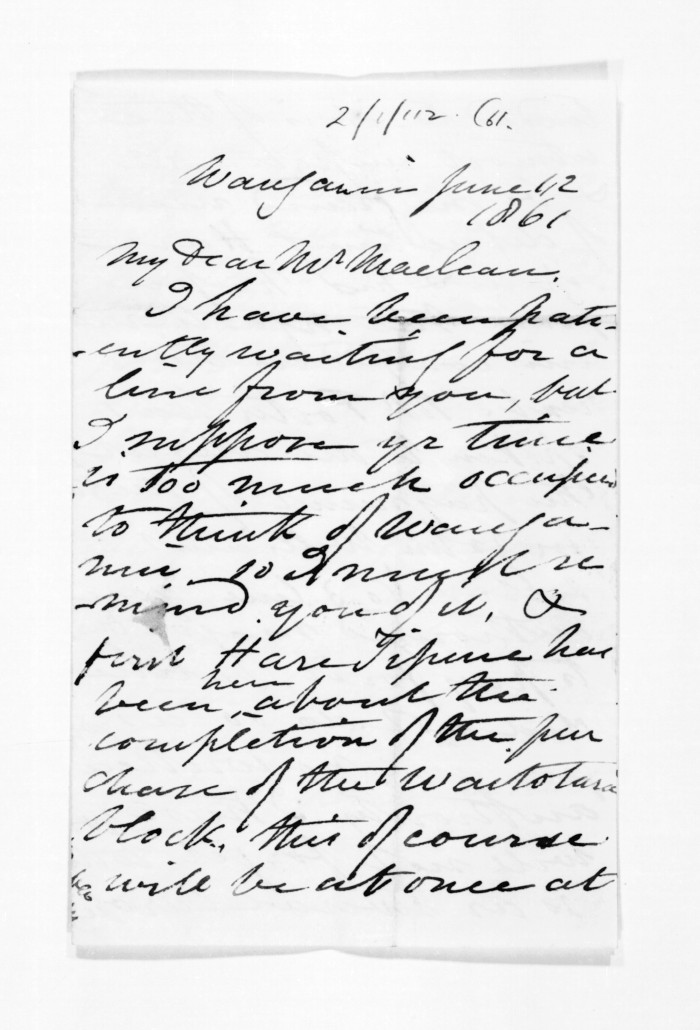 Wanganui June 12
1861
My Dear Mr Maclean.
I have been pati-
-ently waiting for a
line from you, but
I suppose yr time
is too much occupied
to think of Wanga-
nui, so I must re
-mind you of it, &
first Hare Tipene has
been here about the
completion of the pur
chase of the Waitotara
block, this of course
will be at once at